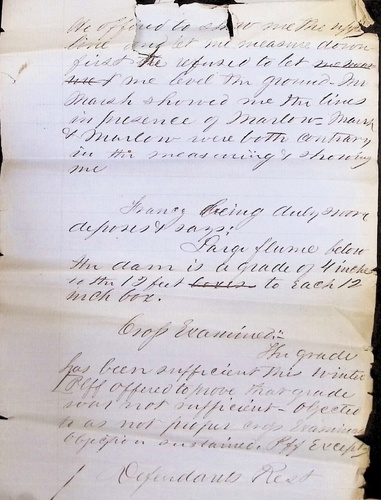 He offered to show me the upper
line and let me measure down
first He refused to let me
& me level the ground. Mr
Marsh showed me the lines
in presence of Marlow. Marsh
& Marlow were both contrary
in the measuring & showing
me
Francy being duly sworn
deposes & says:
Large flume below
the dam is a grade of 4 inches
to the 12 feet to each 12
inch box.
Cross Examined:-
The grade
has been sufficient this winter
Plff offered to prove that grade
was not sufficient - objected
to as not proper cross Examination
Objection sustained. Plff Excepts
Defendants Rest